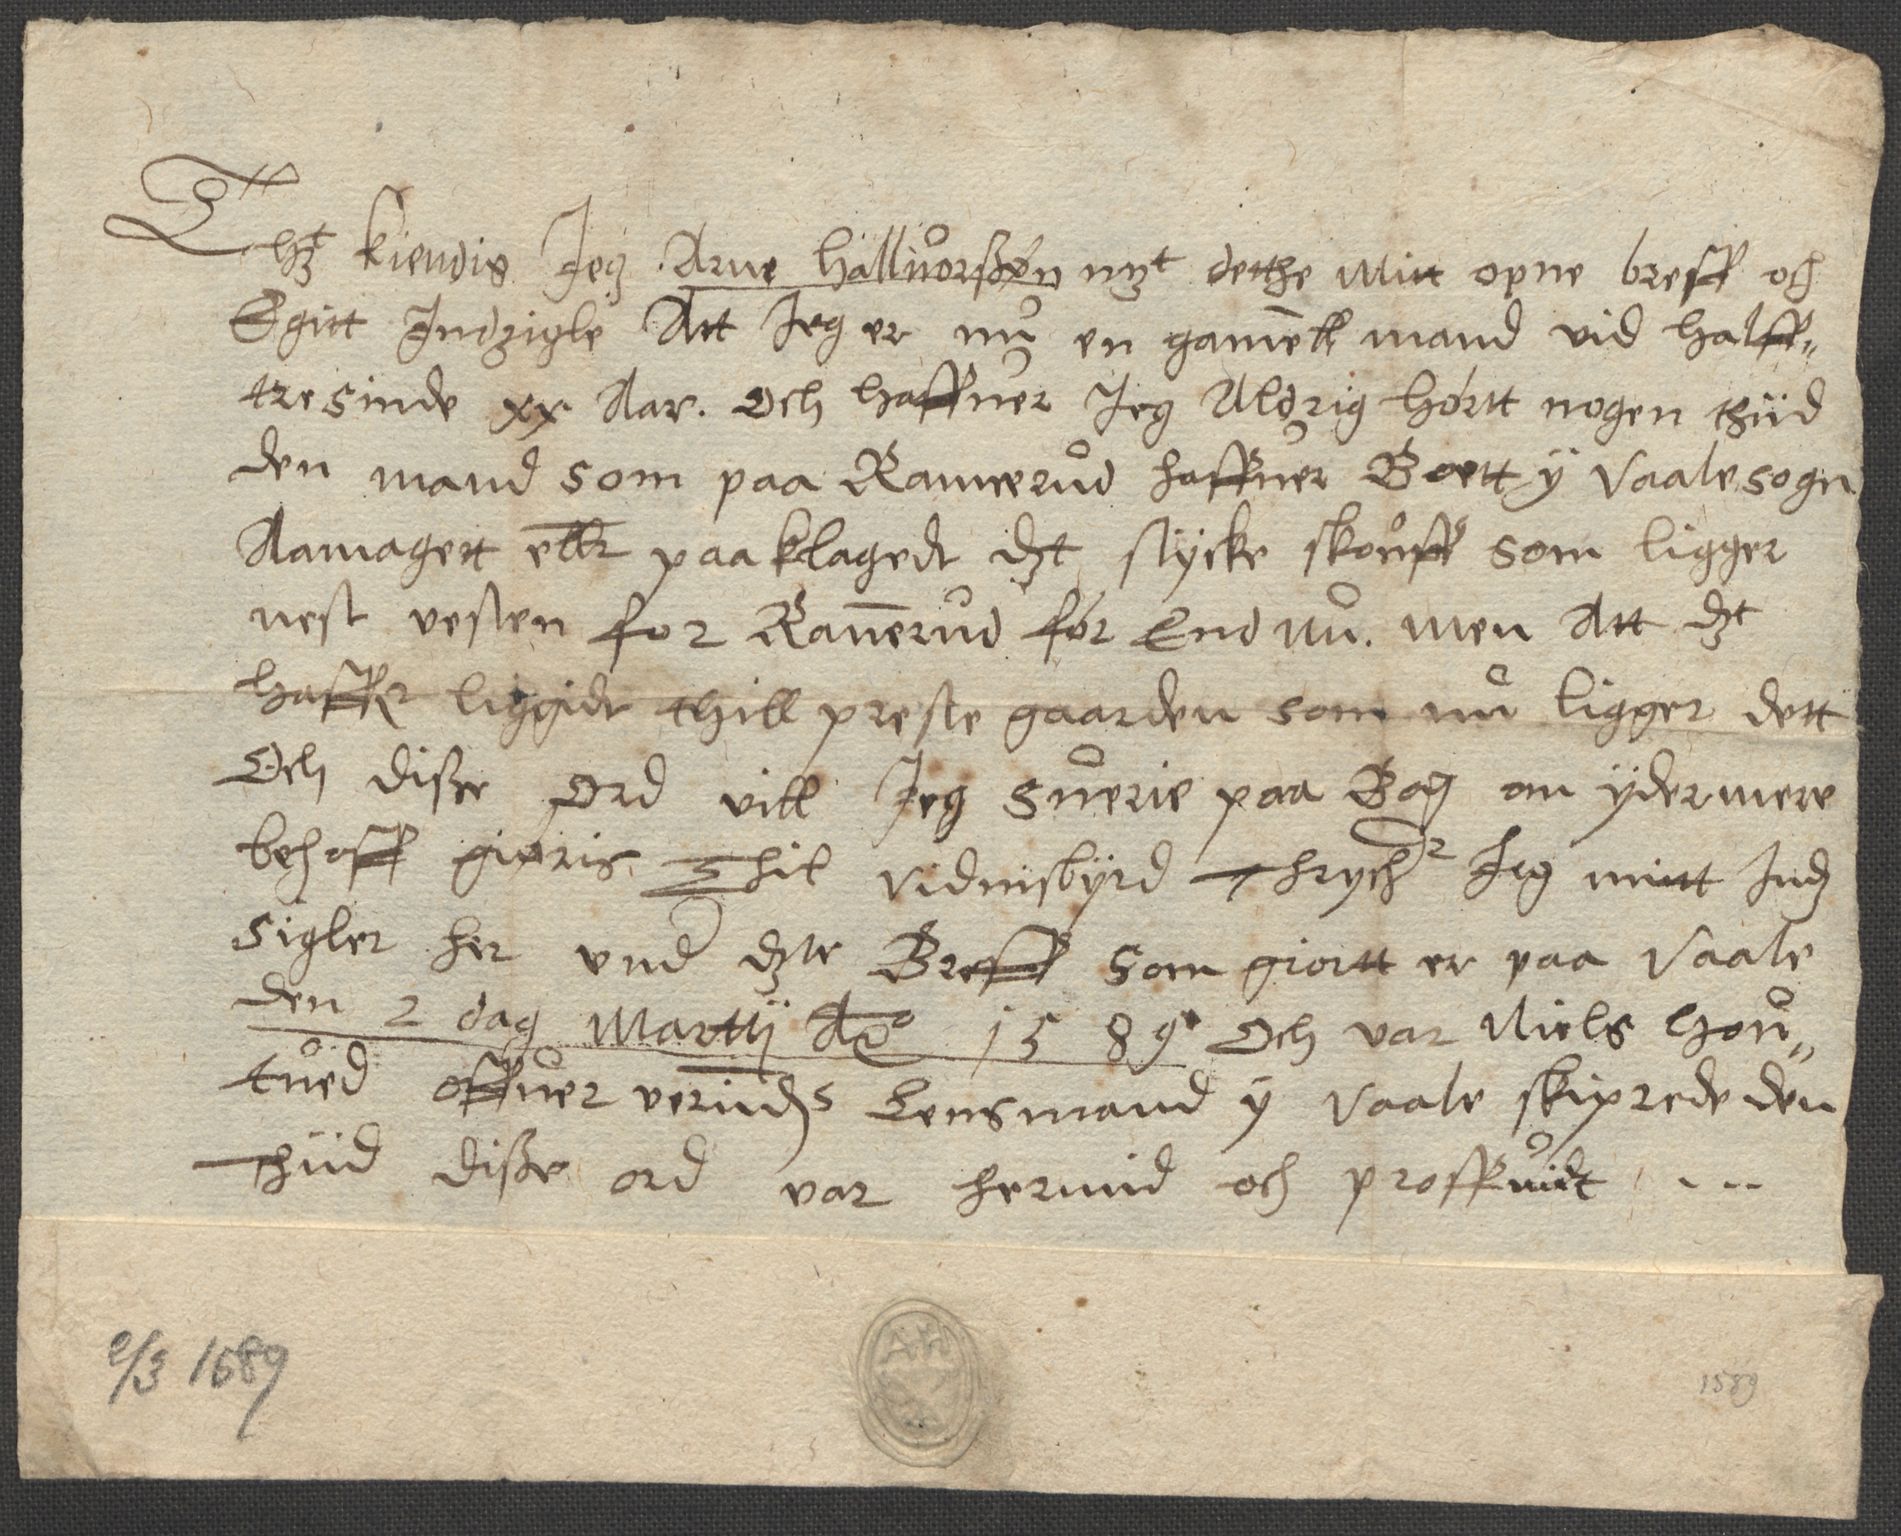 Thet kiendis Jeg Arne Halluorßøn met detthe Mitt opne breff och
Egitt Indzigle Att Jeg er nu en gamell mand vid halff„
tresinde xx Aar. Och haffuer Jeg Aldrig hørtt nogen thiid
den mand som paa Ramerud haffuer Boett ÿ Vaale sogn
Aamagett eller paaklagedt det stÿcke skouff som ligger
nest vesten for Ramerud før End nu. men Att det
haffer liggidt thill preste gaarden som nu ligger dett
Och diße Ord vill Jeg suerie paa Bog om ÿdermere
behoff giøris. Thil vidnisbÿrd thrycher Jeg mitt Ind
sigler her vnder dette Breff som giortt er paa Vaale
den 2 dag Martij Ao 1589 Och var Niels Hou„
tued offuer verinds Lensmand ÿ Vaale skiprede den
thiid diße ord var hermid och proffuidt ...
2/3 1589
AH
1589